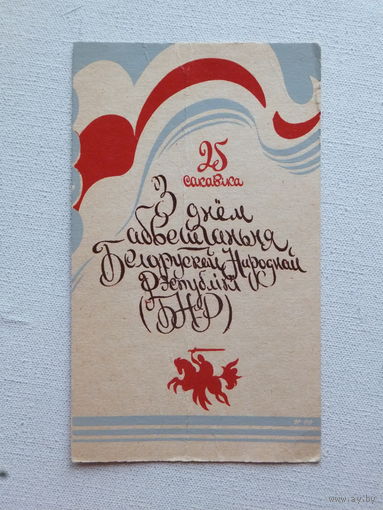 25
сакавіка
З днём
абвешчаньня
Беларускай Народнай
Рэспублікі
(БНР)
www.ay.by